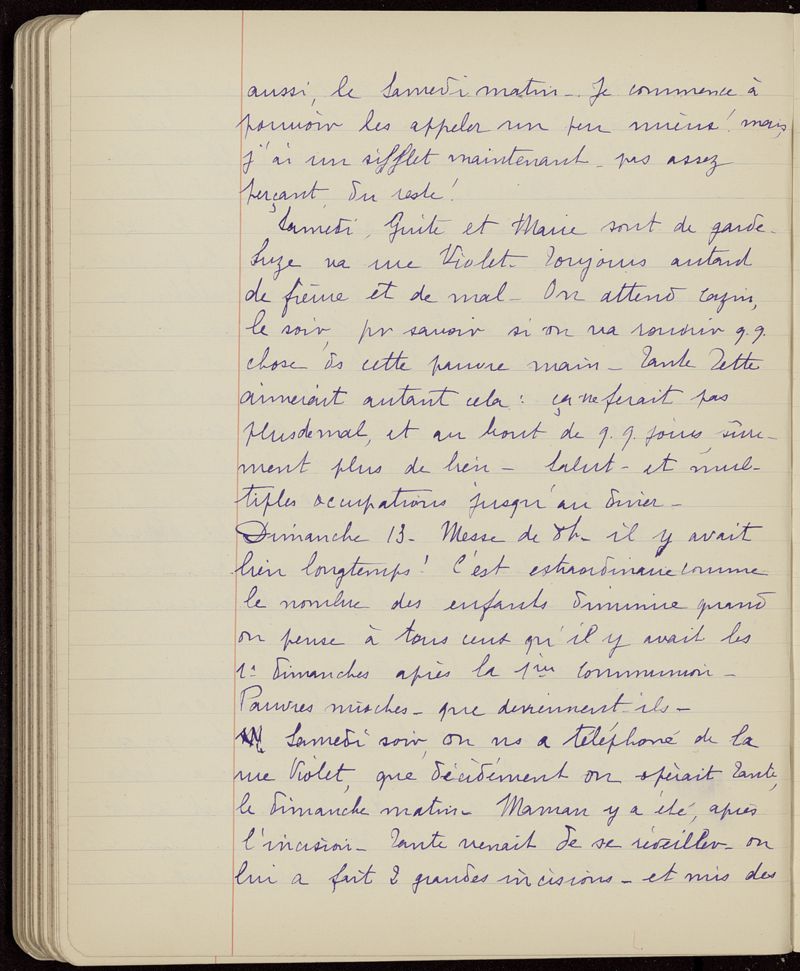 aussi, le Samedi matin - Je commence à
pouvoir les appeler un peu mieux! mais
j'ai un sifflet maintenant - pas assez
perçant, du reste!
Samedi, Guite et Marie sont de garde -
Suze va rue Violet - Toujours autant
de fièvre et de mal - On attend
le soir, pr savoir si on va rouvrir q.q.
chose ds cette pauvre main - Tante Zette
aimerait autant cela: ça ne ferait pas
plus de mal, et au bout de q.q. jours, sûre-
ment plus de bien - Salut - et mul-
tiples occupations jusqu'au dîner -
Dimanche 13 - Messe de 8h - il y avait
bien longtemps! C'est extraordinaire comme
le nombre des enfants diminue quand
on pense à tous ceux qu'il y avait les
1rs dimanches après la 1ère communion -
Pauvres mioches - que deviennent-ils -
Samedi soir, on ns a téléphoné de la
rue Violet, que décidément on opérait Tante,
le dimanche matin - Maman y a été, après
l'incision - Tante venait de se réveiller - on
lui a fait 2 grandes incisions - et mis des